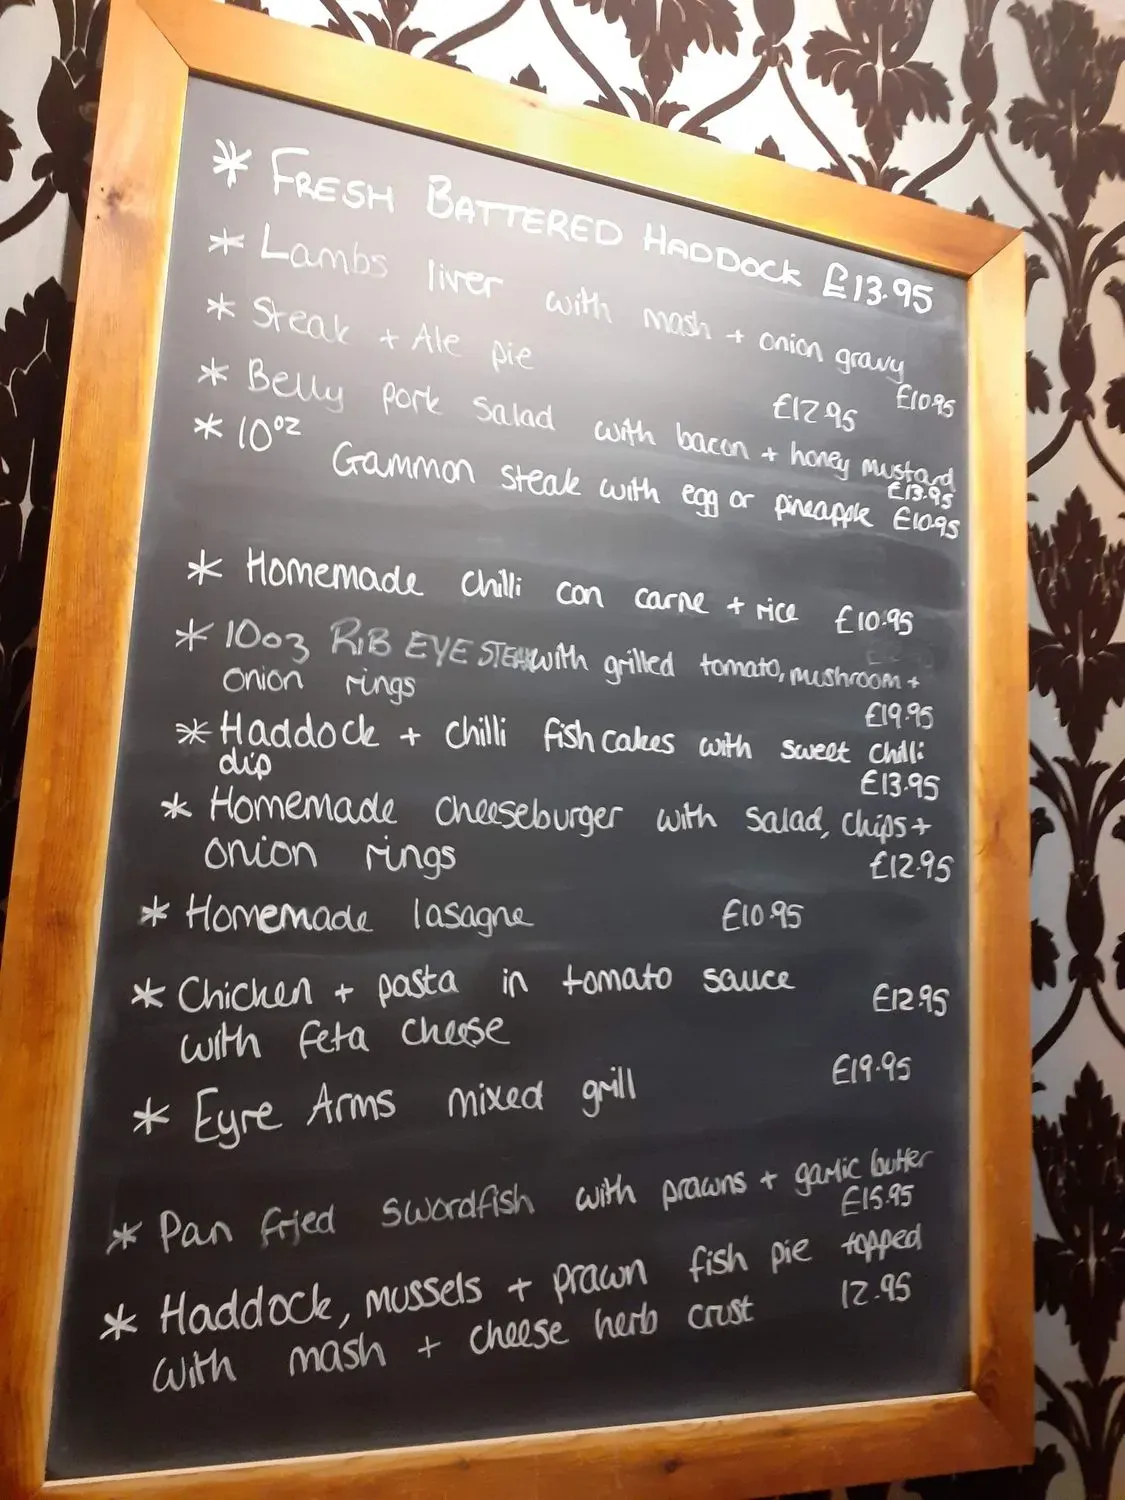 * FRESH BATTERED HADDOCK £13.95
* Lambs liver with mash + onion gravy
£10.95
* Steak + Ale pie £12.95
* Belly pork salad with bacon + honey mustard
£13.95
* 10oz Gammon steak with egg or pineapple £10.95
* Homemade chilli con carne + rice £10.95
* 10oz RIB EYE STEAK with grilled tomato, mushroom +
onion rings £19.95
* Haddock + chilli fishcakes with sweet chilli
dip £13.95
* Homemade cheeseburger with salad, chips +
onion rings £12.95
* Homemade lasagne £10.95
* Chicken + pasta in tomato sauce
with feta cheese £12.95
* Eyre Arms mixed grill £19.95
* Pan fried swordfish with prawns + garlic butter
£15.95
* Haddock, mussels + prawn fish pie topped
with mash + cheese herb crust 12.95